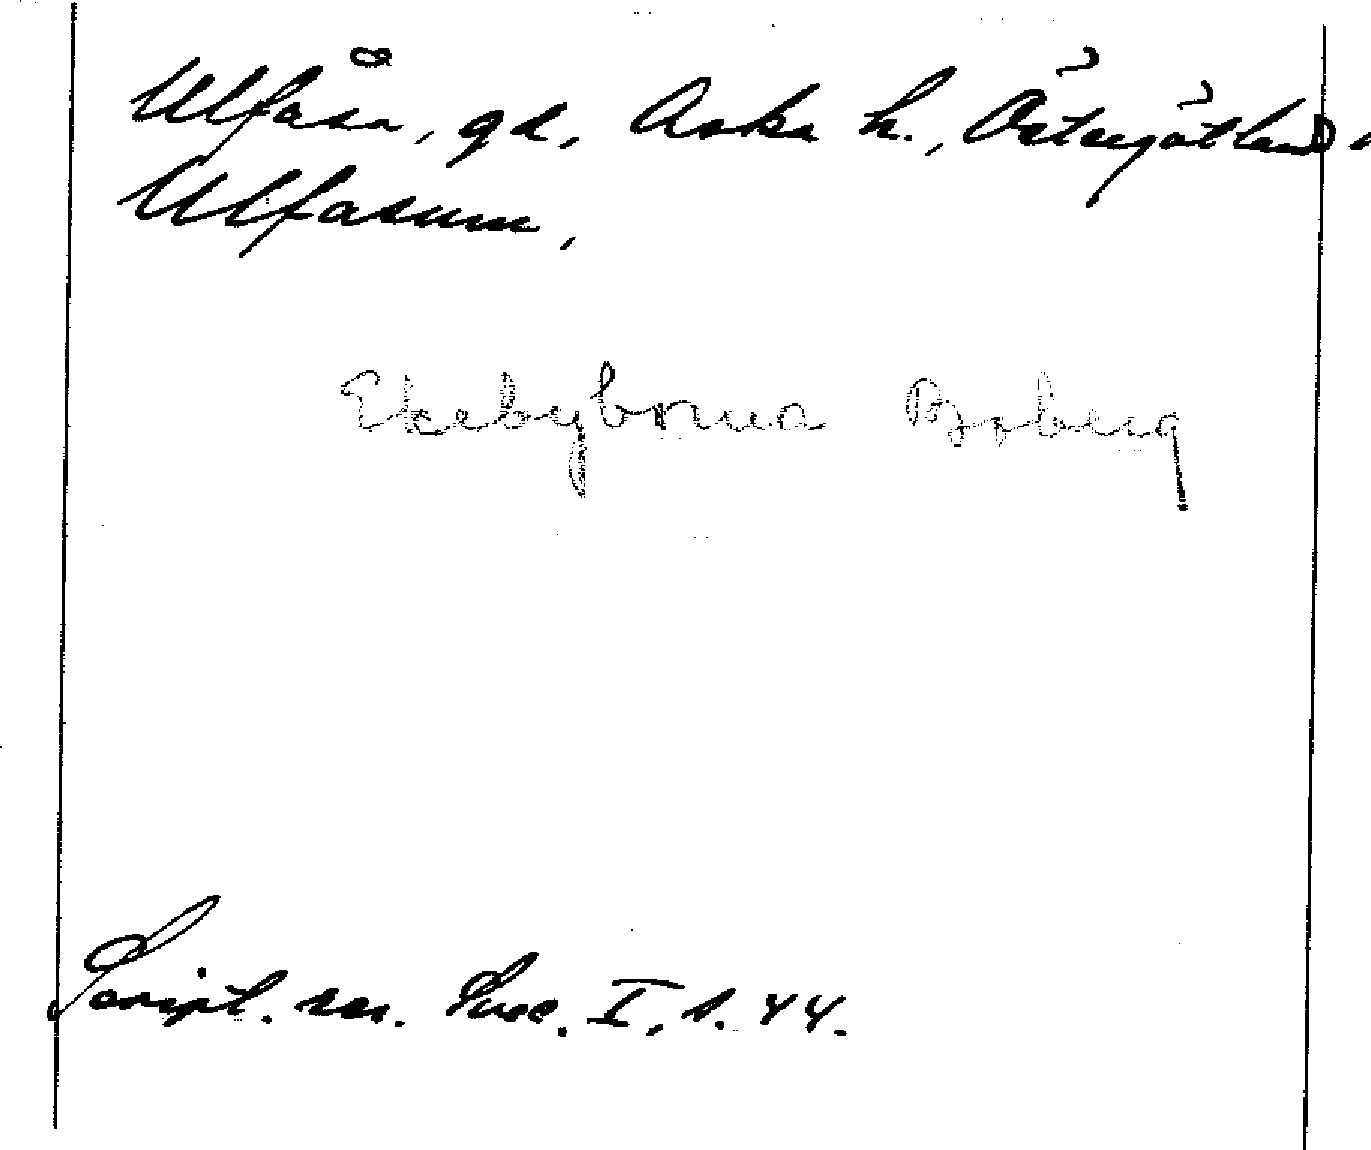 Ulfåsa, gd, Aska h., Östergötland.
Ulfasum,
Ekebyborna Boberg
Script. rer. Suec. I, s. 44.